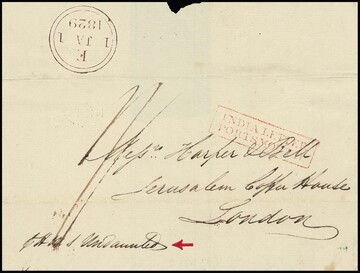 F.
1 JA 1
1829
INDIA LETTER
PORTSMOUTH
Messrs Harper
Jerusalem Coffee House
London
H M S Undaunted